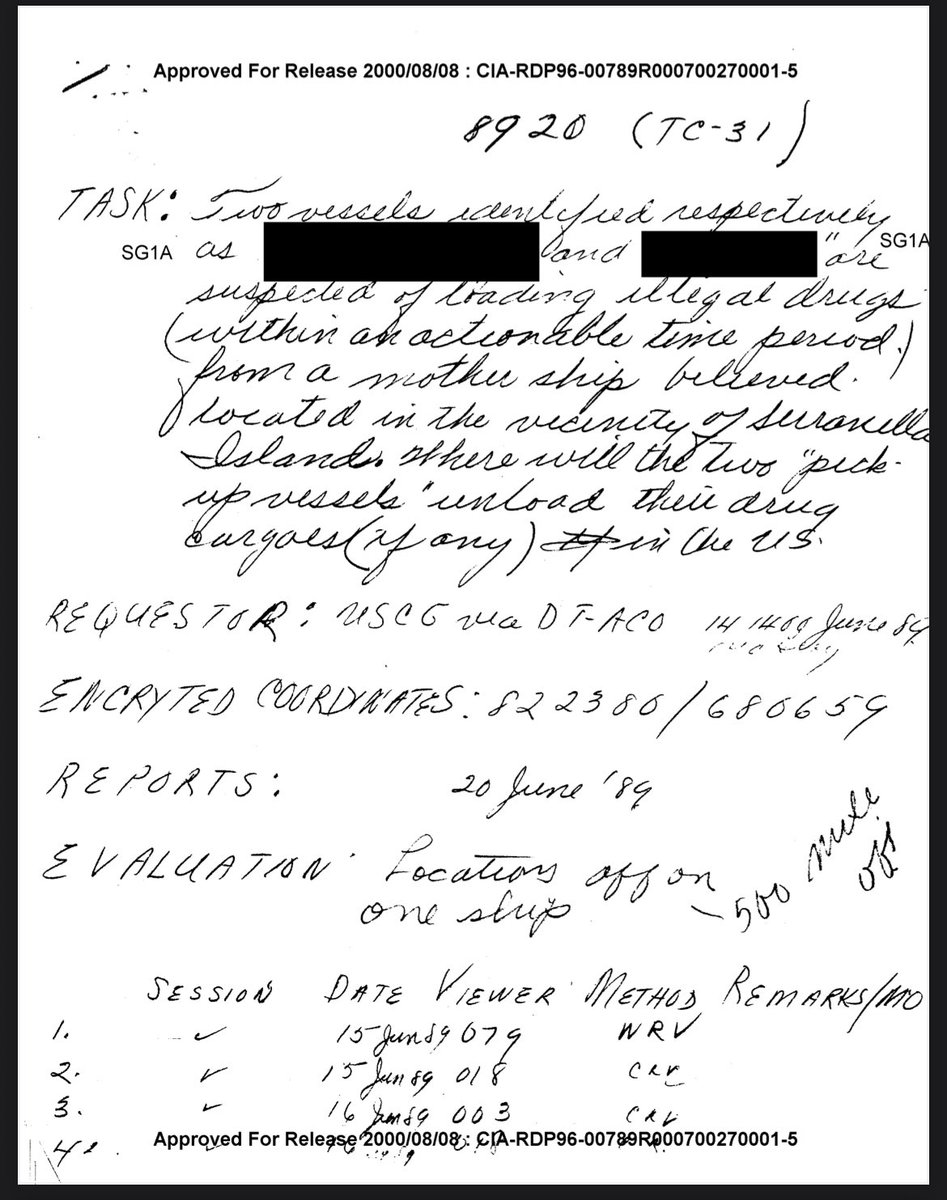 Approved For Release 2000/08/08 : CIA-RDP96-00789R000700270001-5
8920 (TC-31)
TASK: Two vessels identified respectively
SG1A as and "are SG1A
suspected of loading illegal drugs
(within an actionable time period.)
from a mother ship believed.
located in the vicinity of Serranilla
Island. Where will the two "pick-
up vessels" unload their drug
cargoes (if any) in the US.
REQUESTOR: USCG via DT-ACO 14 1400 June 89
ENCRYTED COORDINATES: 822380/680659
REPORTS: 20 June '89
EVALUATION: Locations off on
one ship
– 500 mile
off
SESSION DATE VIEWER METHOD REMARKS/MO
1. ✓ 15 Jun 89 079 WRV
2. ✓ 15 Jun 89 018 CRV
3. ✓ 16 Jun 89 003 CRV
4.
Approved For Release 2000/08/08 : CIA-RDP96-00789R000700270001-5